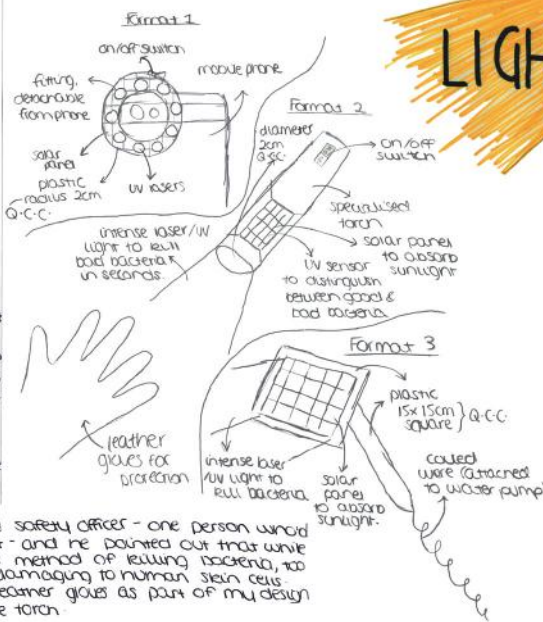 Format 1
on/off switch
mobile phone
fitting,
detachable
from phone
solar
panel
plastic
radius 2cm
Q.C.C.
UV lasers
LIGH
Format 2
diameter
2cm
Q.C.C.
on/off
switch
specialised
torch
solar panel
to absorb
sunlight
UV sensor
to distinguish
between good &
bad bacteria
intense laser/UV
light to kill
bad bacteria
in seconds.
leather
gloves for
protection
Format 3
plastic
15x15cm
square } Q.C.C.
coiled
wire (attached
to water pump)
intense laser
/UV light to
kill bacteria
solar
panel
to absorb
sunlight.
safety officer - one person who'd
- and he pointed out that while
method of killing bacteria, too
damaging to human skin cells.
leather gloves as part of my design
torch.